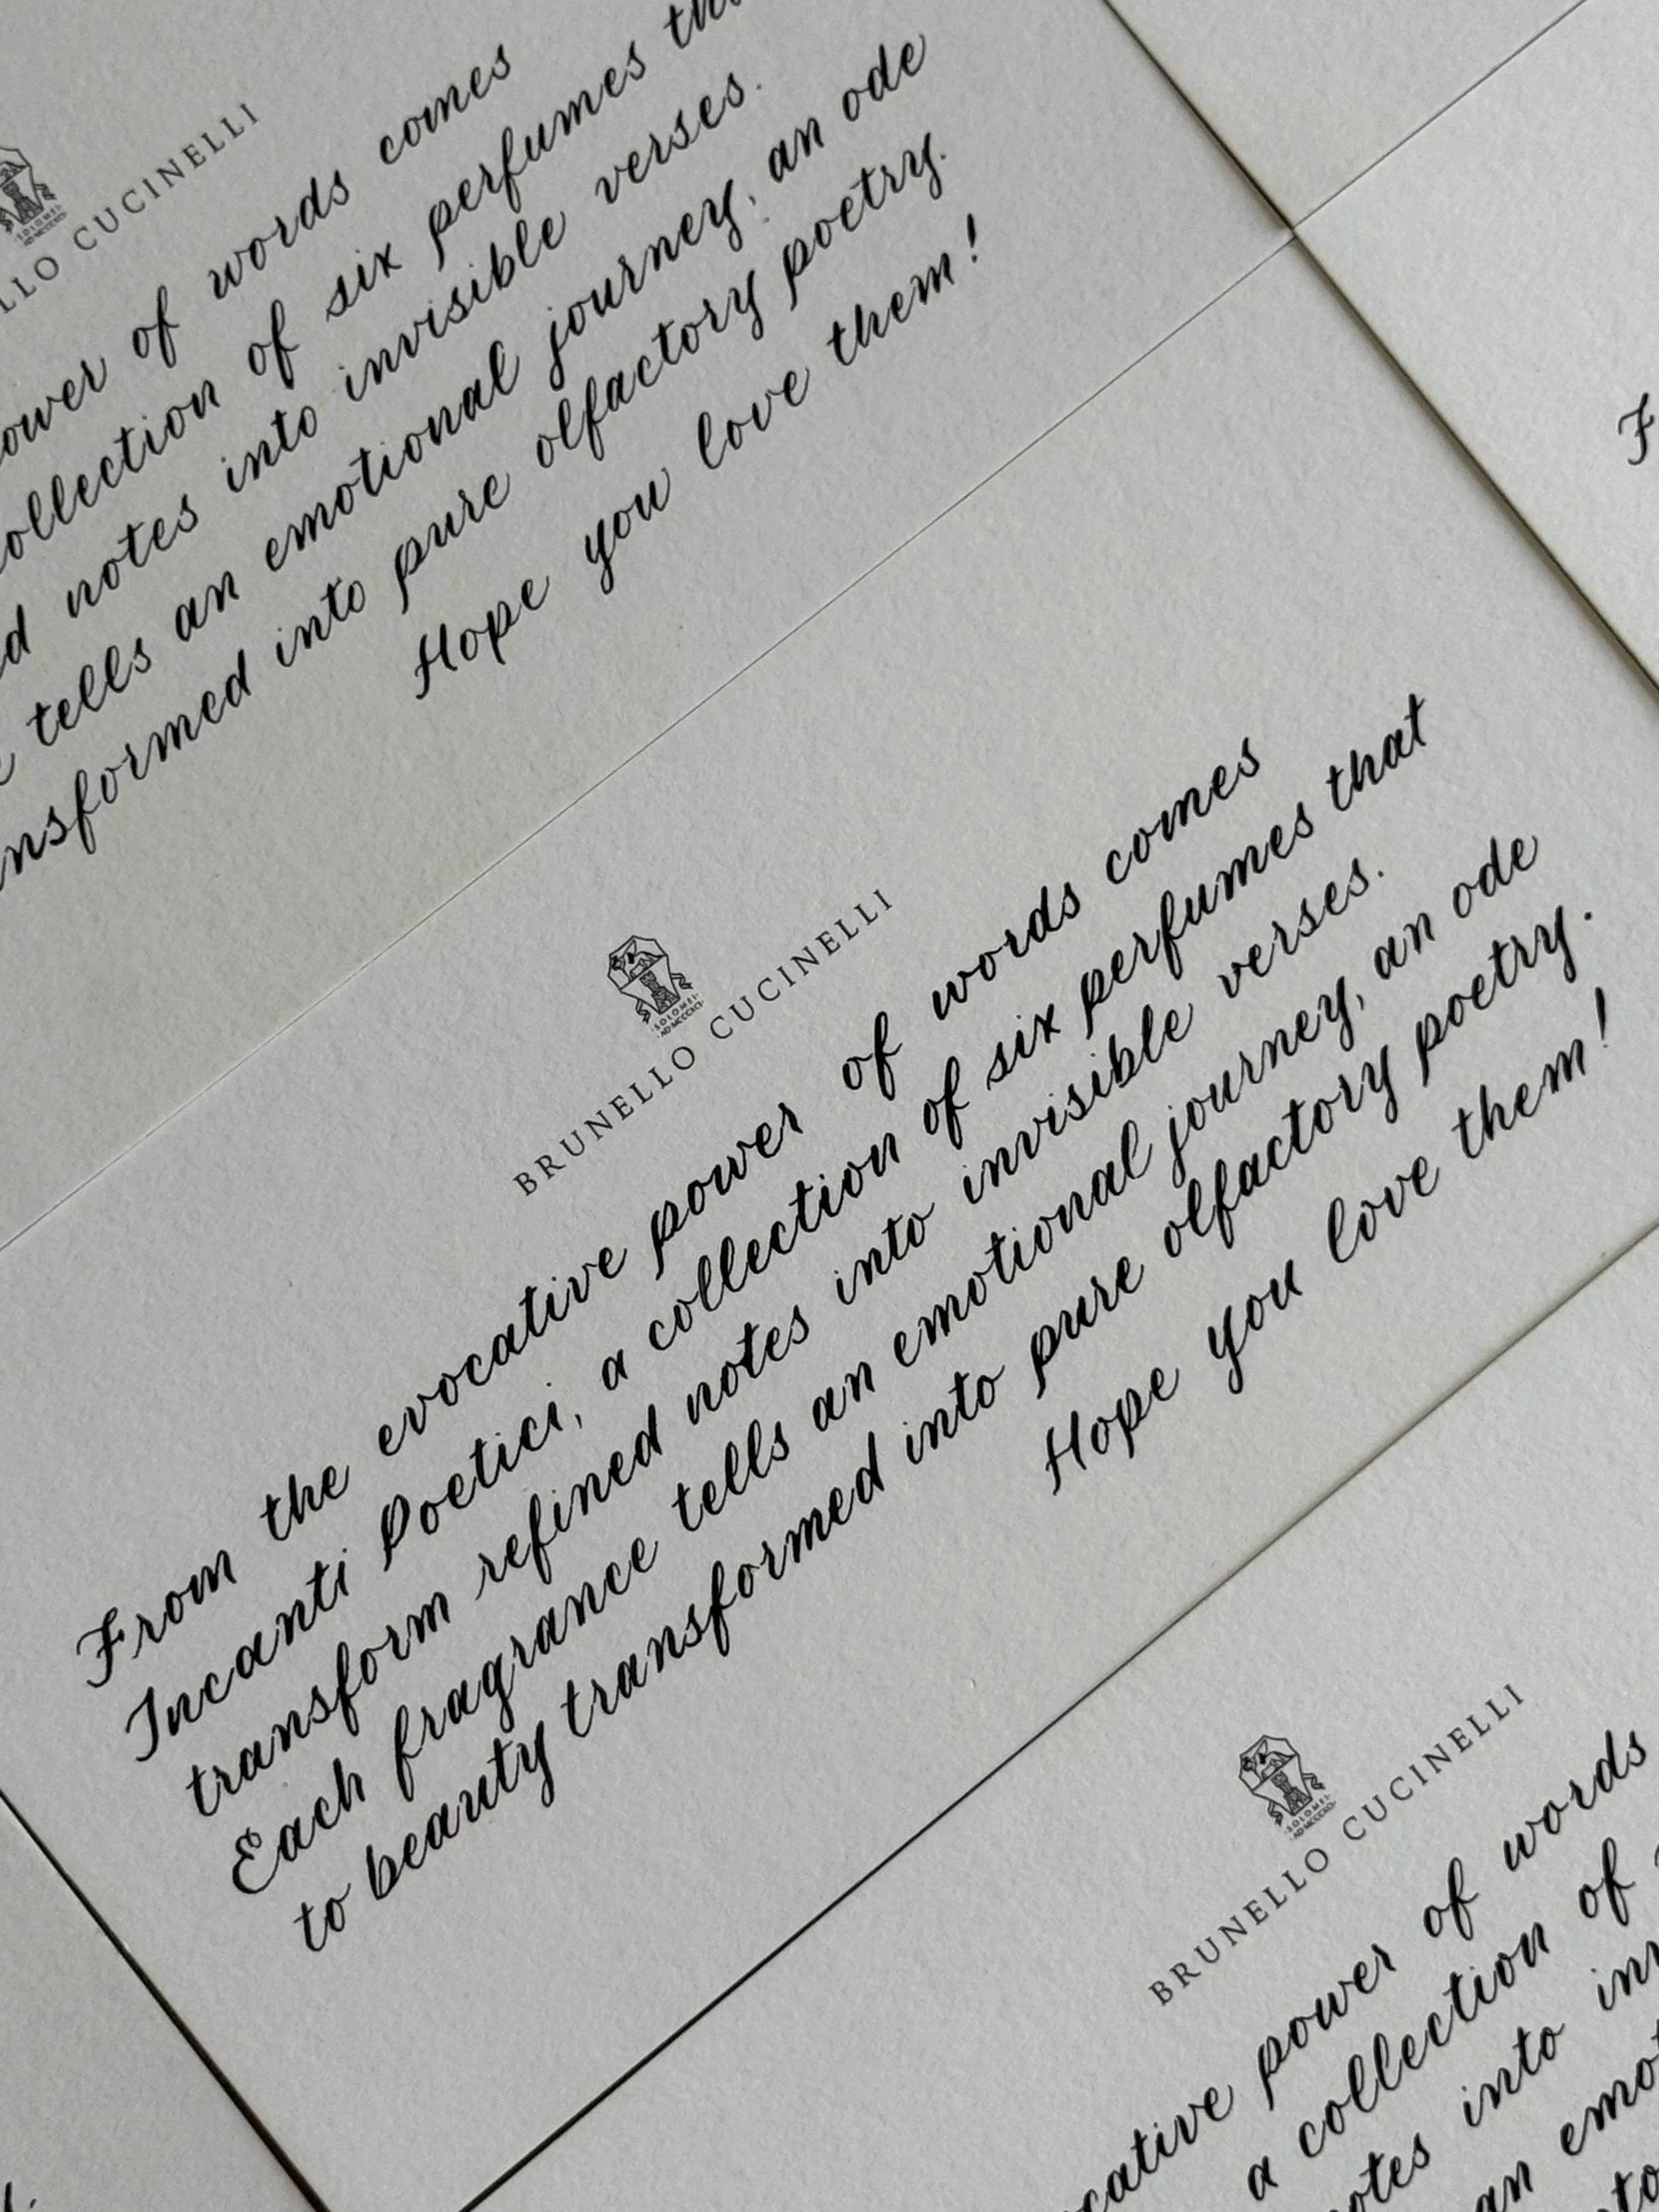 LLO CUCINELLI
ower of words comes
ollection of six perfumes
notes into invisible verses.
tells an emotional journey, an ode
nsformed into pure olfactory poetry.
Hope you love them!
SOLOMEI
BRUNELLO CUCINELLI
From the evocative power of words comes
Incanti Poetici, a collection of six perfumes that
transform refined notes into invisible verses.
Each fragrance tells an emotional journey, an ode
to beauty transformed into pure olfactory poetry.
Hope you love them!
F
SOLOMEI
BRUNELLO CUCINELLI
cative power of words
a collection of
otes into inv
an emot